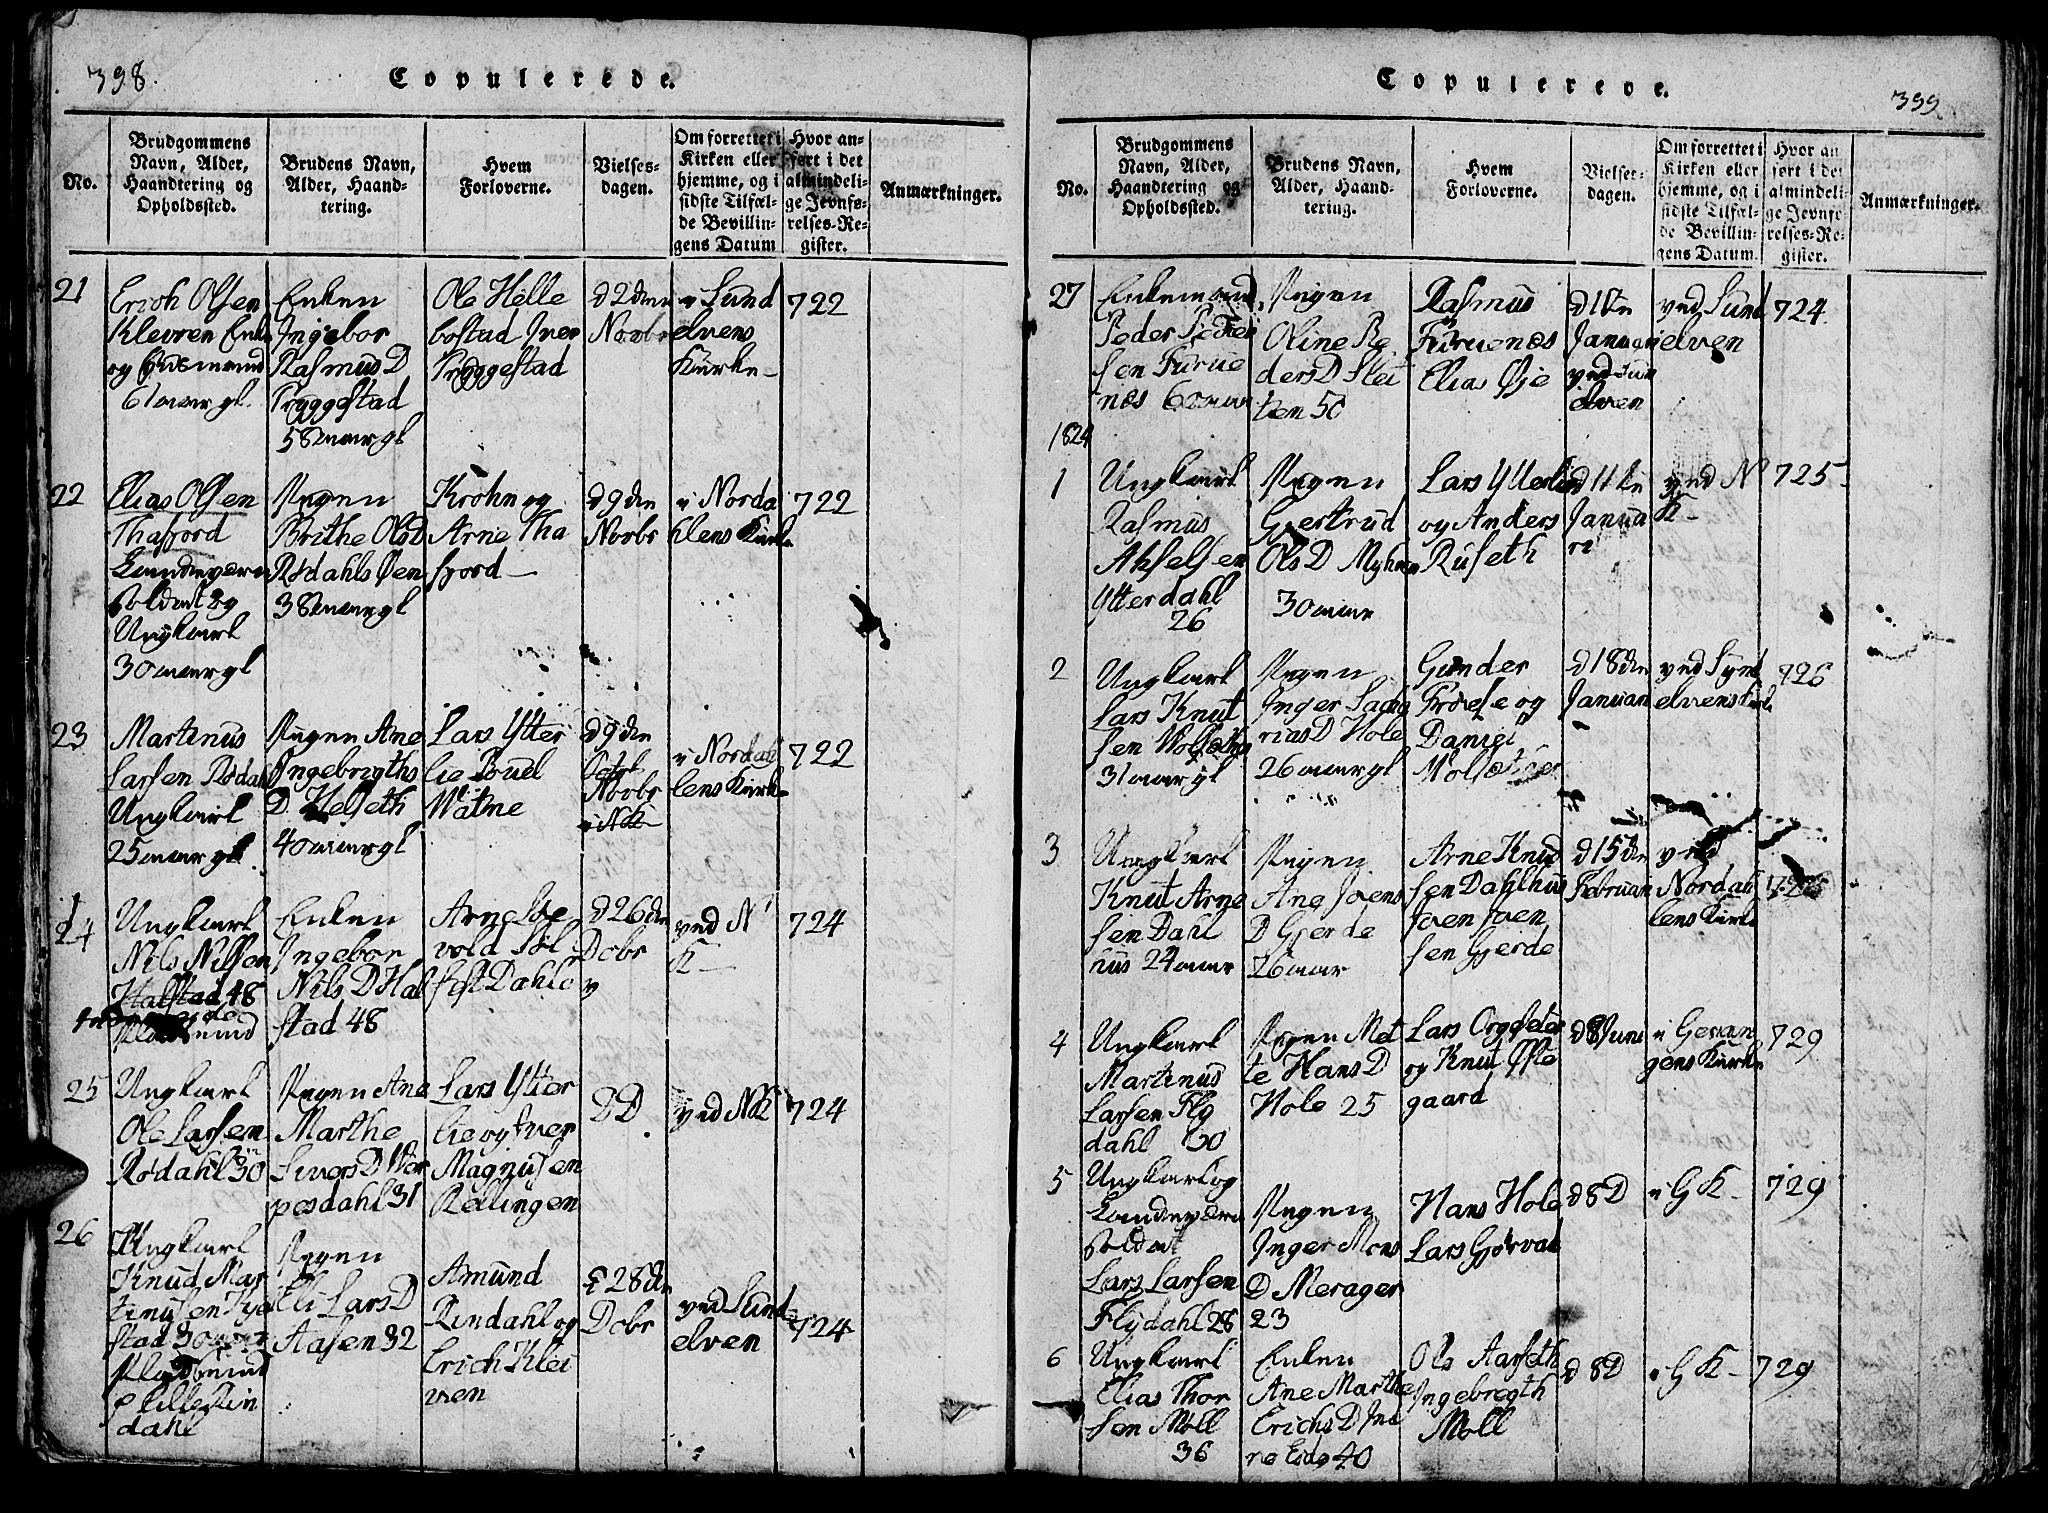 398.
Copulerede.
No.
Brudgommens
Navn, Alder,
Haandtering og
Opholdssted.
Brudens Navn,
Alder, Haand-
tering.
Hvem
Forloverne.
Vielses-
dagen.
Om forrettet i
Kirken eller
hjemme, og i
sidste Tilfæl-
de Bevillin-
gens Datum
Hvor an-
ført i det
almindeli-
ge Jevnfø-
relses-Re-
gister.
Anmærkninger.
21
Erich Olsen
Klevren Enke
og Huusmand
61 aar gl.
Enken
Ingebor
Rasmus D
Tryggestad
58 aar gl
Ole Helle
bostad Iver
Tryggestad
d 2den
Novbr
i Sund
elvens
Kirke
722
22
Elias Olsen
Thafiord
Landeværn
soldat og
Ungkarl
30 aar gl
Pigen
Brithe OlsD
Rødahls Øen
38 aar gl
Krohn og
Arne Tha
fjord
d 9den
Novbr
i Norda
hlens Kirke
722
23
Martinus
Larsen Rødahl
Ungkarl
25 aar gl.
Pigen Ane
Ingebrigths
D. Helseth
40 aar gl
Lars Ytter
lie Poul
Watne
d 9den
Novbr
i NK
i Nordah
lens Kirke
722
24
Ungkarl
Nils Nilsen
Halstad 48
Enken
Ingebor
Nils D Hal
stad 48
Arne
vold
Dahle
d 26den
Dcbr
ved N
K
724
25
Ungkarl
Ole Larsen
Rødahl 30
Pigen Ane
Marthe
Sivers D Nor
pesdahl 31
Lars Ytter
lie og Iver
Magnusen
Rellingen
D D
ved NK
724
26
Ungkarl
Knud Mar
tinusen
stad 30
Pladsmand
dahl
Pigen
Eli Lars D
Aasen 32
Amund
Rindahl og
Erich Klei
ven
d 28de
Dcbr
ved Sund
elven
724
Copulerede.
399.
No.
Brudgommens
Navn, Alder,
Haandtering og
Opholdssted.
Brudens Navn,
Alder, Haand-
tering.
Hvem
Forloverne.
Vielses-
dagen.
Om forrettet i
Kirken eller
hjemme, og i
sidste Tilfæl-
de Bevillin-
gens Datum.
Hvor an
ført i det
almindeli-
ge Jevnfø-
relses-Re-
gister.
Anmærkninger.
27
Enkemand
Peder Peder
sen Furue
næs 60 aar
Pigen
Oline Pe
ders D Slet
ten 50
Rasmus
Furuenæs
Elias Øje
d 1te
Januari
ved Sun
elven
ved Sund
elven
724.
1824
1
Ungkarl
Rasmus
Akselsen
Ytterdahl
26
Pigen
Gjertrud
Ols D Myhren
30 aar
Lars Ytterlie
og Anders
Ruseth
d 11te
Janua
ri
ved N
K
725
2
Ungkarl
Lars Knut
sen
31 aar gl
Pigen
Inger Sacha
rias D Hole
26 aar gl
Gunder
Frøese og
Daniel
Molsæter
d 18den
Januari
ved Syndt
elvens Kirke
726
3
Ungkarl
Knut Arne
sen Dahl
hus 24 aar
Pigen
Ane Joens
D Gjerde
26 aar
Arne Knud
sen Dahlhus
Joen Joen
sen Gjerde
d 15de
Februari
ved
Nordah
lens Kirke
4
Ungkarl
Martinus
Larsen Fly
dahl 30
Pigen Met
te Hans D
Hole 25
Lars Orgseter
og Knut Øste
gaard
d 8 Juni
i Geran
gens Kirke
729
5
Ungkarl og
Landeværn
soldat
Lars Larsen
Flydahl 28
Pigen
Inger Mons
D Merager
23
Hans Hole
Lars Gjørvad
d 8 D
i G K
729
6
Ungkarl
Elias Thor
sen Moll
36
Enken
Ane Marthe
Erichs D Ind
re Eide 40
Ols Aarseth
Ingebregth
Moll
d 8 D
i G K
729